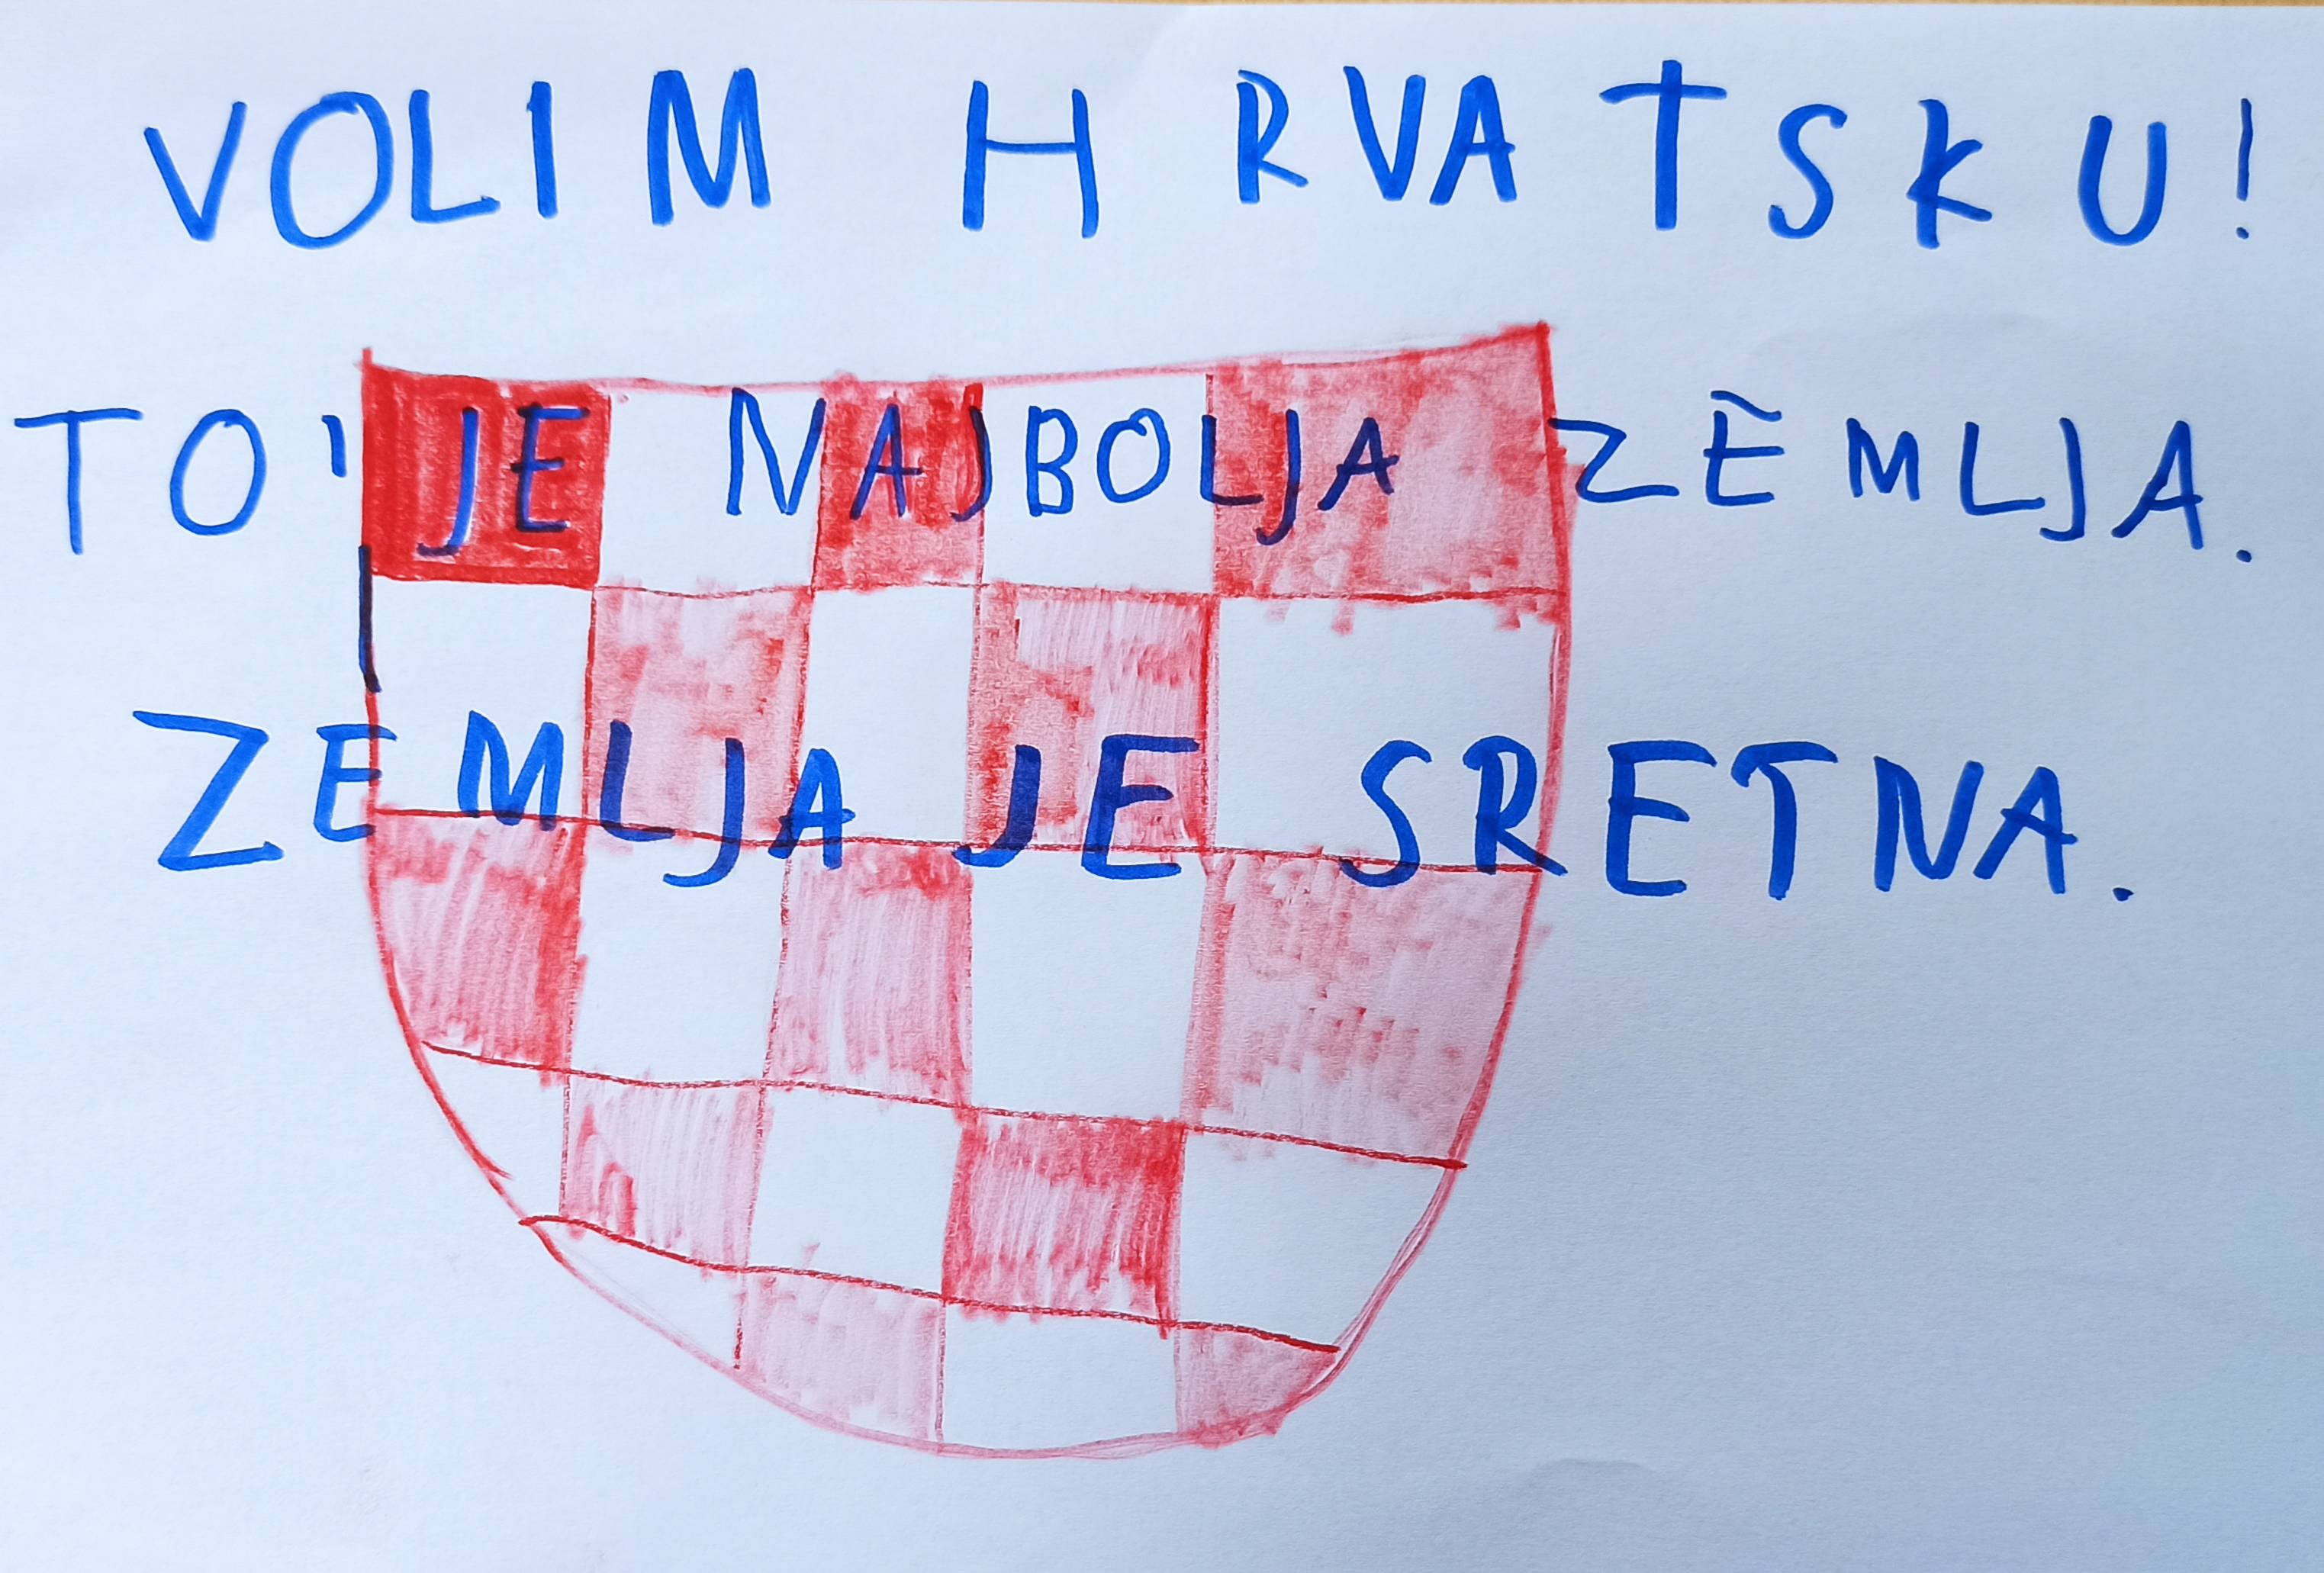 VOLIM HRVATSKU!
TO JE NAJBOLJA ZEMLJA.
ZEMLJA JE SRETNA.